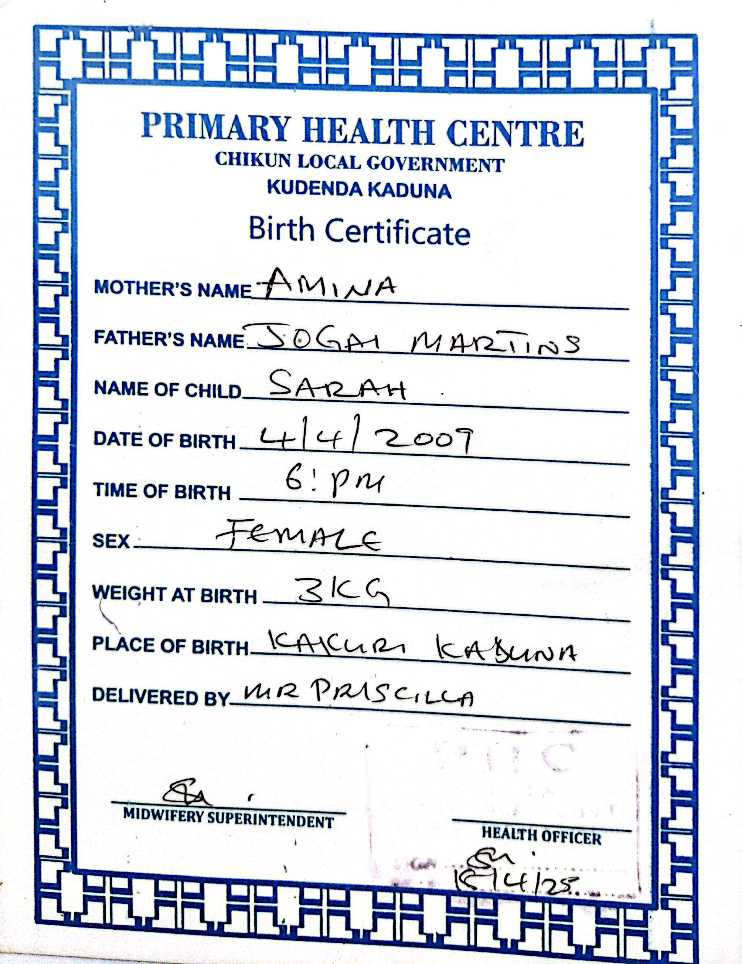 PRIMARY HEALTH CENTRE
CHIKUN LOCAL GOVERNMENT
KUDENDA KADUNA
Birth Certificate
MOTHER'S NAME AMINA
FATHER'S NAME JOGAI MARTINS
NAME OF CHILD SARAH
DATE OF BIRTH 4/4/2009
TIME OF BIRTH 6: PM
SEX FEMALE
WEIGHT AT BIRTH 3KG
PLACE OF BIRTH KAKURI KADUNA
DELIVERED BY MR PRISCILLA
MIDWIFERY SUPERINTENDENT
HEALTH OFFICER
15/4/25